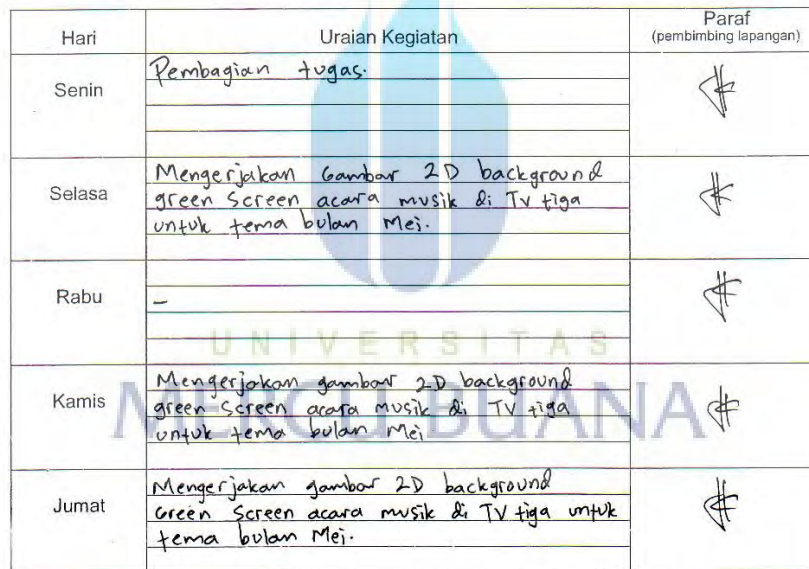 Hari Uraian Kegiatan Paraf
(pembimbing lapangan)
Senin
Pembagian tugas.
Selasa
Mengerjakan Gambar 2D background
green Screen acara musik di Tv tiga
untuk tema bulan Mei.
Rabu
-
UNIVERSITAS
MERCU BUANA
Kamis
Mengerjakan gambar 2D background
green Screen acara musik di TV tiga
untuk tema bulan Mei
Jumat
Mengerjakan gambar 2D background
Green Screen acara musik di TV tiga untuk
tema bulan Mei.